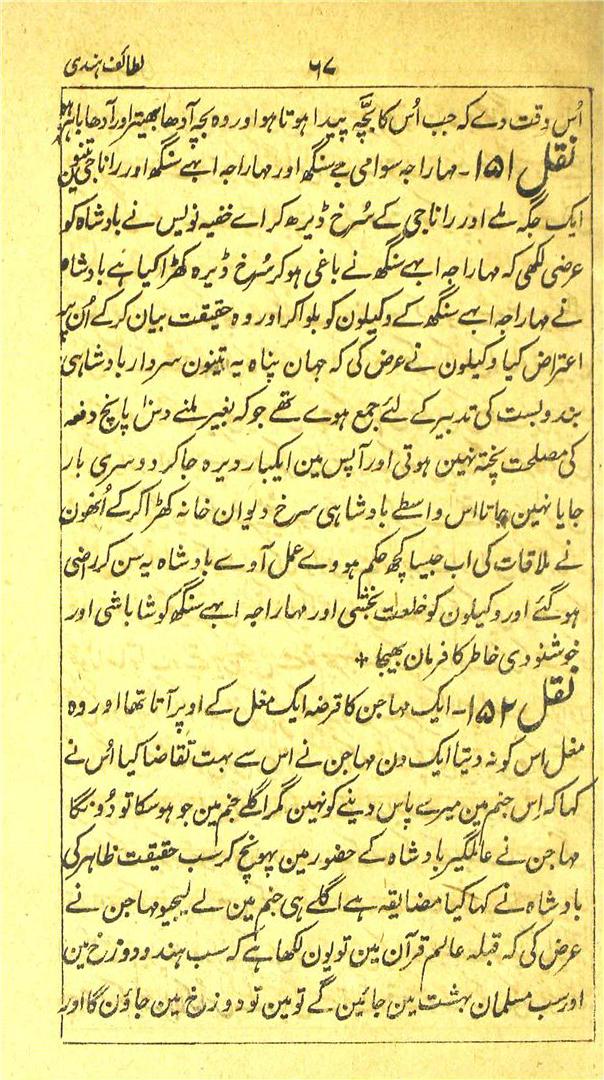 ۶۷ لطائف ہندی
اُس وقت دے کہ جب اُس کا بچّہ پیدا ہوتا ہو اور وہ بچہ آدھا بھیتر اور آدھا باہر ہو
نقل ۱۵۱۔ مہاراجہ سوامی جے سنگھ اور مہاراجہ ابھے سنگھ اور راناجی تینون
ایک جگہ ملے اور راناجی کے سُرخ ڈیرہ کراے خفیہ نویس نے بادشاہ کو
عرضی لکھی کہ مہاراجہ ابھے سنگھ نے باغی ہوکر سُرخ ڈیرہ کھڑا کیا ہے بادشاہ
نے مہاراجہ ابھے سنگھ کے وکیلون کو بلواکر اور وہ حقیقت بیان کرکے اُن پر
اعتراض کیا وکیلون نے عرض کی کہ جہان پناہ یہ تینون سردار بادشاہی
بندوبست کی تدبیر کے لئے جمع ہوے تھے جو کہ بغیر ملنے دس پانچ دفعہ
کی مصلحت پختہ نہین ہوتی اور آپس مین ایکبار دیرہ جاکر دوسری بار
جایا نہین جاتا اس واسطے بادشاہی سرخ دیوان خانہ کھڑا کرکے اُنھون
نے ملاقات کی اب جیسا کچھ حکم ہووے عمل آوے بادشاہ یہ سن کر راضی
ہوگئے اور وکیلون کو خلعت بخشی اور مہاراجہ ابھے سنگھ کو شاباشی اور
خوشنودی خاطر کا فرمان بھیجا *
نقل ۱۵۲۔ ایک مہاجن کا قرضہ ایک مغل کے اوپر آتا تھا اور وہ
مغل اس کو نہ دیتا ایک دن مہاجن نے اس سے بہت تقاضا کیا اُس نے
کہا کہ اِس جنم مین میرے پاس دینے کو نہین مگر اگلے جنم مین جو ہوسکا تو دُونگا
مہاجن نے عالمگیر بادشاہ کے حضور مین پہونچ کر سب حقیقت ظاہر کی
بادشاہ نے کہا کیا مضایقہ ہے اگلے ہی جنم مین لے لیجیو مہاجن نے
عرض کی کہ قبلہ عالم قرآن مین تو یون لکھا ہے کہ سب ہندو دوزخ مین
اور سب مسلمان بہشت مین جائین گے تو مین تو دوزخ مین جاؤن گا اور